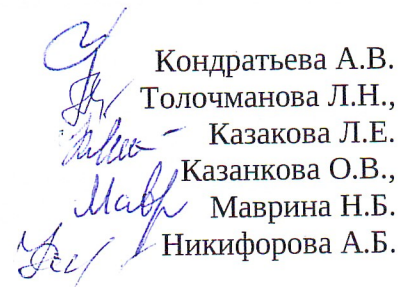 Кондратьева А.В.
Толочманова Л.Н.,
Казакова Л.Е.
Казанкова О.В.,
Мавр Маврина Н.Б.
Никифорова А.Б.